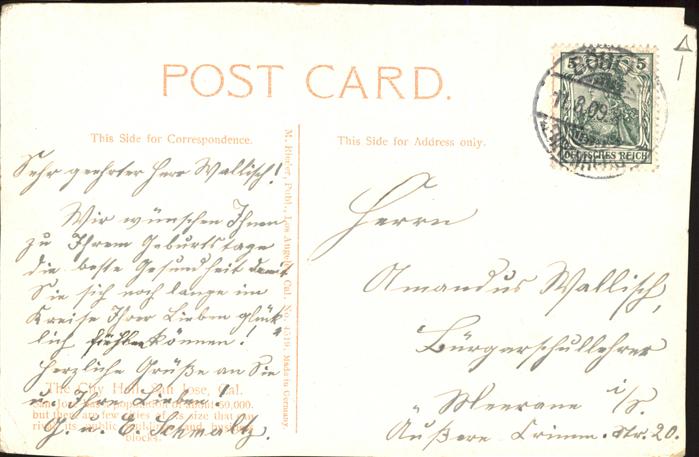 POST CARD.
This Side for Correspondence.
This Side for Address only.
Sehr geehrter Herr Wallisch!
Wir wünschen Ihnen
zu Ihrem Geburtstage
die beste Gesundheit damit
Sie sich noch lange im
Kreise Ihrer Lieben glück-
lich fühlen können!
Herzliche Grüße an Sie
u. Ihre Lieben!
G. u. E. Schmaltz.
The City Hall, San Jose, Cal.
San Jose has a population of about 60,000,
but there are few cities of its size that can
rival its public buildings and business
blocks.
M. Rieder, Publ., Los Angeles, Cal. No. 4519. Made in Germany.
Herrn
Amandus Wallisch,
Bürgerschullehrer
Meerane i/S.
Äußere Crimm. Str. 20.
5 5
DEUTSCHES REICH
11.8.09.